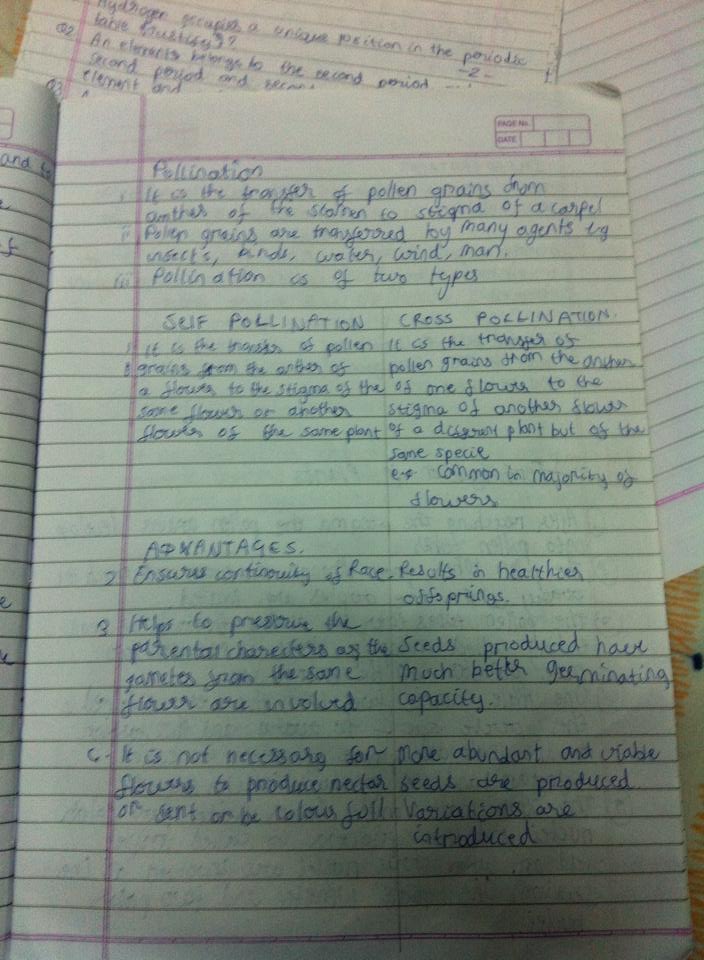 Hydrogen occupies a unique position in the periodic
table Justify??
-2-
Q2 An elements belongs to the second period
second period and
element and
Q3
and
PAGE No.
DATE
Pollination
i It is the transfer of pollen grains from
anther of the stamen to stigma of a carpel
ii Pollen grains are transferred by many agents eg
insect's, birds, water, wind, man.
iii Pollination is of two types
SELF POLLINATION
1 It is the transfer of pollen
grains from the anther of
a flower to the stigma of the
same flower or another
flower of the same plant
CROSS POLLINATION.
It is the transfer of
pollen grains from the anther
of one flower to the
stigma of another flower
of a different plant but of the
same specie
e.g. common in majority of
flowers
ADVANTAGES.
2 Ensures continuity of Race.
Results in healthier
offsprings.
3 Helps to preserve the
parental charecters as the
gametes from the same
flower are involved
Seeds produced have
much better germinating
capacity.
It is not necessary for
flowers to produce nectar
or sent or be colour full
More abundant and viable
seeds are produced
Variations are
introduced